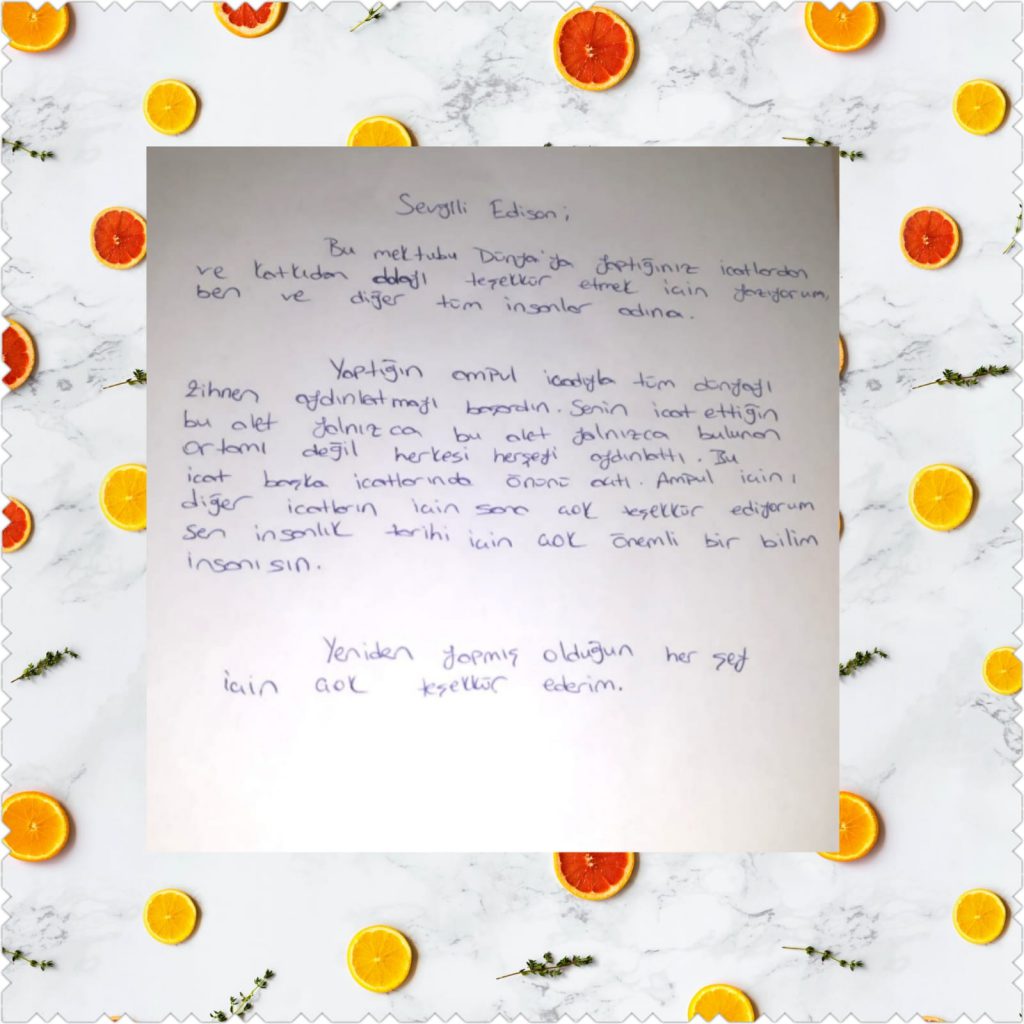 Sevgili Edison;
Bu mektubu Dünya'ya yaptığınız icatlardan
ve katkıdan dolayı teşekkür etmek için yazıyorum,
ben ve diğer tüm insanlar adına.
Yaptığın ampul icadıyla tüm dünyayı
zihnen aydınlatmayı başardın. Senin icat ettiğin
bu alet yalnızca bu alet yalnızca bulunan
ortamı değil herkesi herşeyi aydınlattı. Bu
icat başka icatlarında önünü açtı. Ampul için,
diğer icatların için sana çok teşekkür ediyorum
sen insanlık tarihi için çok önemli bir bilim
insanısın.
Yeniden yapmış olduğun her şey
için çok teşekkür ederim.